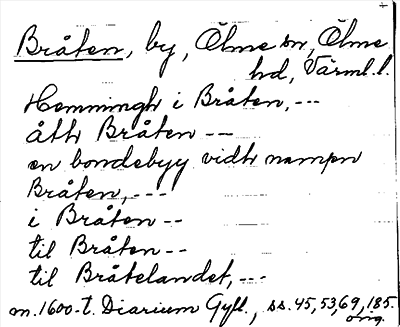 Bråten, by, Ölme sn, Ölme
hd, Värml. l.
Hemmingh i Bråten, ---
åth Bråten --
en bondebyy vidh nampn
Bråten, ---
i Bråten --
til Bråten --
til Bråtelandet, ---
m. 1600-t. Diarium Gyll., ss. 45, 53, 69, 185.
orig.